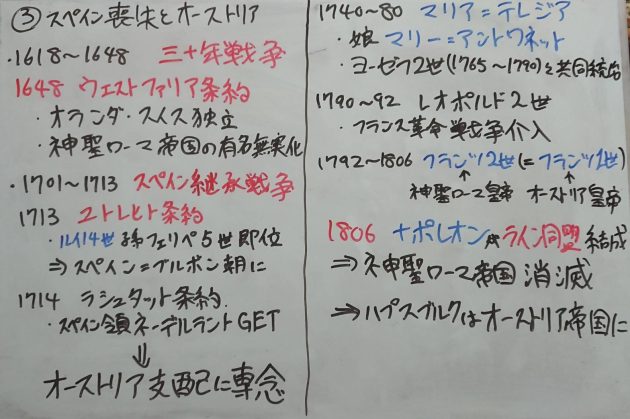 ③ スペイン喪失とオーストリア
・1618〜1648 三十年戦争
1648 ウェストファリア条約
・オランダ・スイス独立
・神聖ローマ帝国の有名無実化
・1701〜1713 スペイン継承戦争
1713 ユトレヒト条約
・ルイ14世孫フェリペ5世即位
⇒スペイン=ブルボン朝に
1714 ラシュタット条約
・スペイン領ネーデルラントGET
⇓
オーストリア支配に専念
1740〜80 マリア=テレジア
・娘 マリー=アントワネット
・ヨーゼフ2世(1765〜1790)と共同統治
1790〜92 レオポルド2世
・フランス革命戦争介入
1792〜1806 フランツ2世(=フランツ1世)
↑ ↑
神聖ローマ皇帝 オーストリア皇帝
1806 ナポレオンがライン同盟結成
⇒神聖ローマ帝国消滅
⇒ハプスブルクはオーストリア帝国に